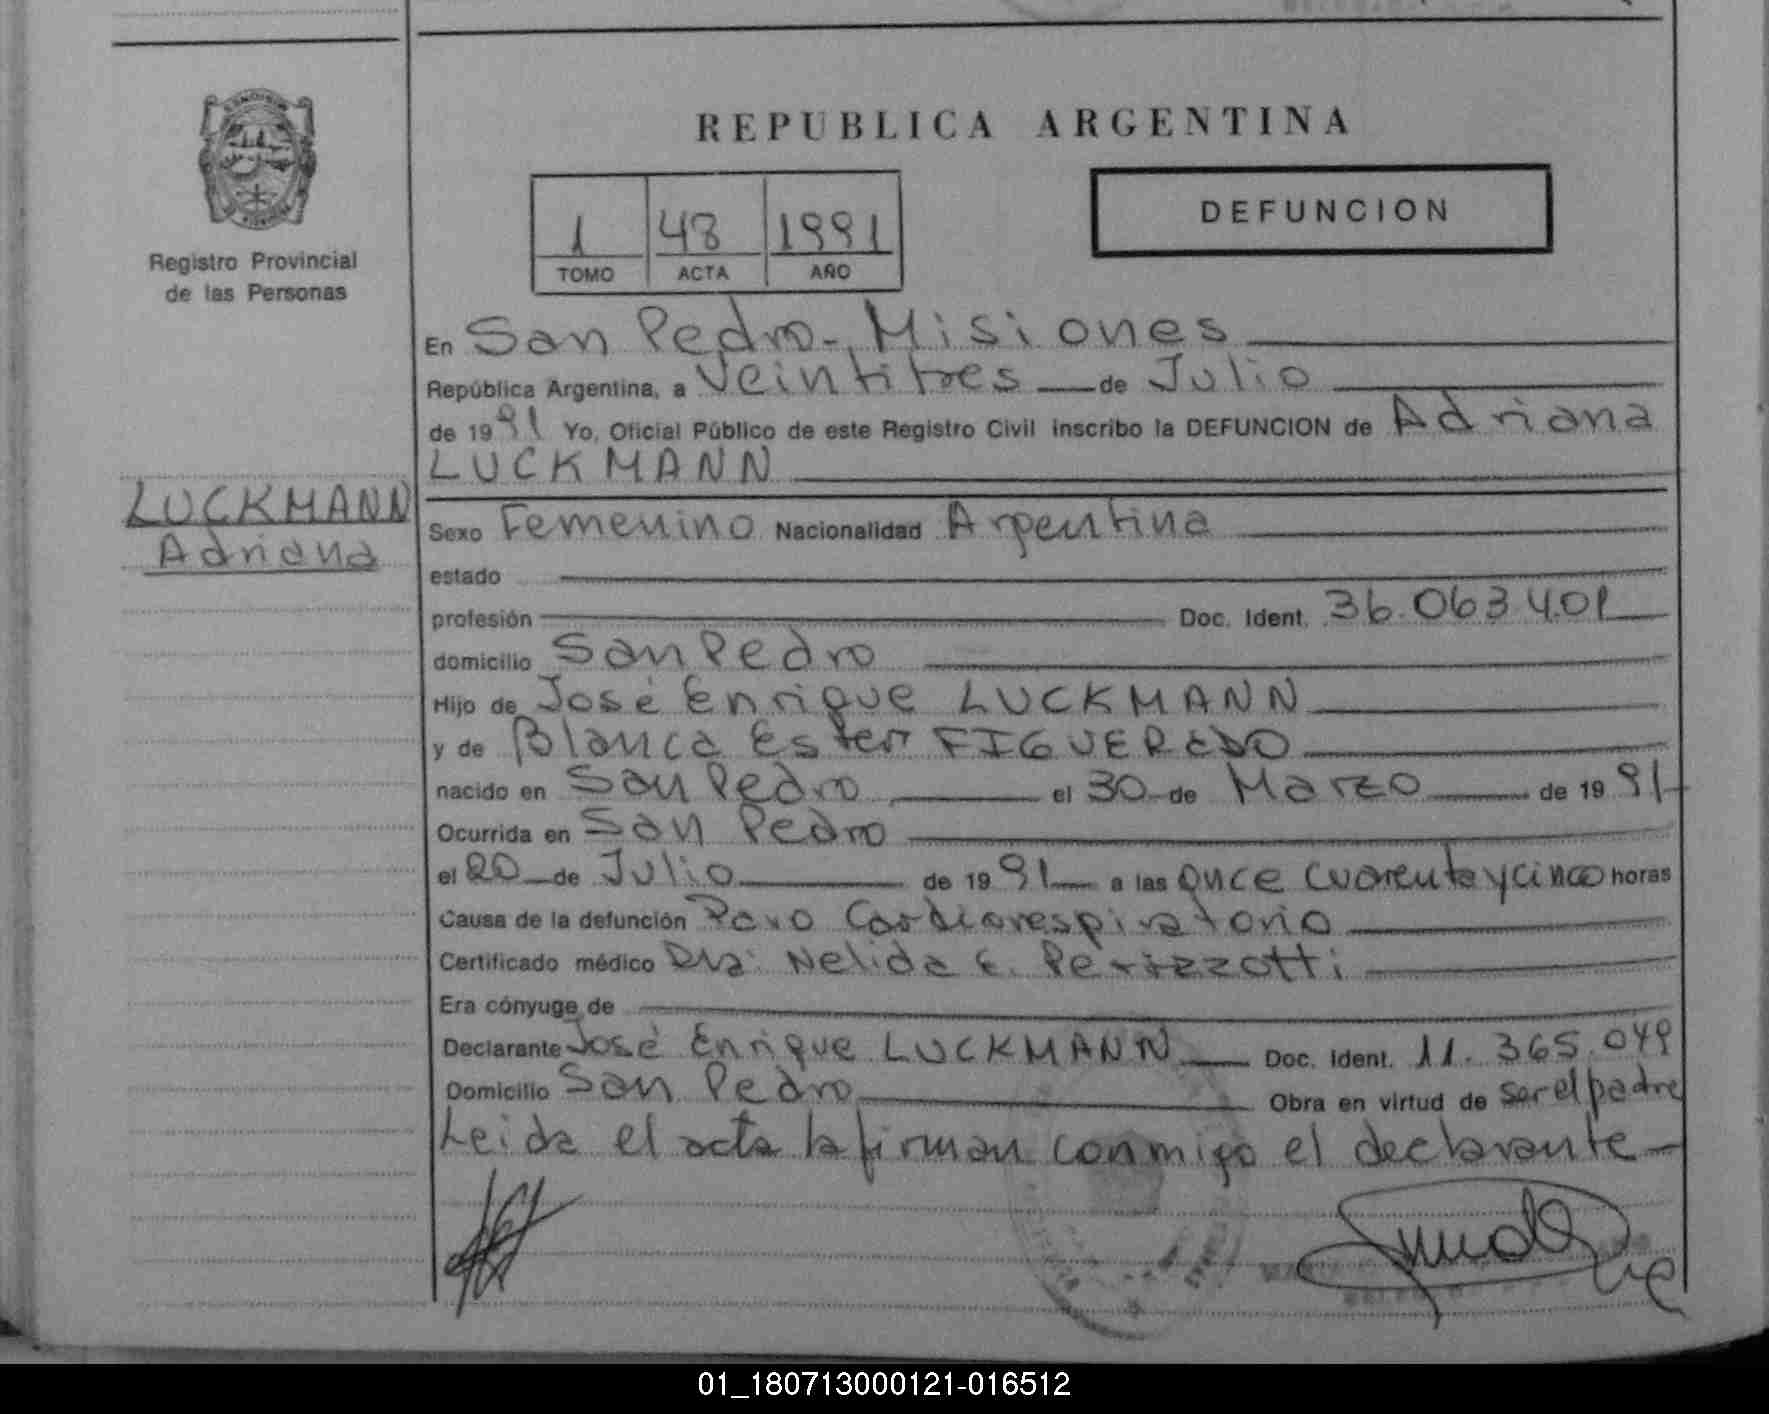 REPUBLICA ARGENTINA
1 48 1991
TOMO ACTA AÑO
DEFUNCION
Registro Provincial
de las Personas
En San Pedro - Misiones
República Argentina, a Veintitres de Julio
de 1991 Yo, Oficial Público de este Registro Civil inscribo la DEFUNCION de Adriana
LUCKMANN
LUCKMANN
Adriana
Sexo Femenino Nacionalidad Argentina
estado
profesión Doc. Ident. 36.063.401
domicilio San Pedro
Hijo de José Enrique LUCKMANN
y de Blanca Ester FIGUEREDO
nacido en San Pedro el 30 de Marzo de 1991
Ocurrida en San Pedro
el 20 de Julio de 1991 a las once cuarenta y cinco horas
Causa de la defunción Paro Cardiorespiratorio
Certificado médico Dra. Nelida E.
Era cónyuge de
Declarante José Enrique LUCKMANN Doc. Ident. 11.365.049
Domicilio San Pedro Obra en virtud de ser el padre
Leida el acta la firman conmigo el declarante
01_180713000121-016512